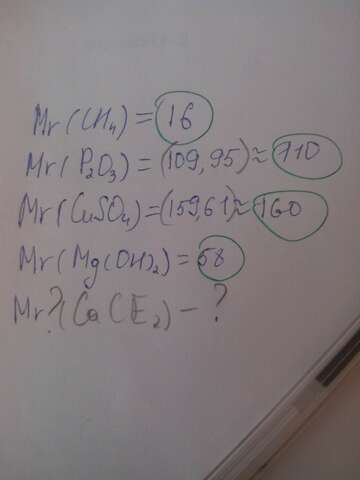 Mr(CH₄) = 16
Mr(P₂O₃) = (109,95) ≈ 110
Mr(CuSO₄) = (159,61) ≈ 160
Mr(Mg(OH)₂) = 58
Mr?(CaCE₂) - ?